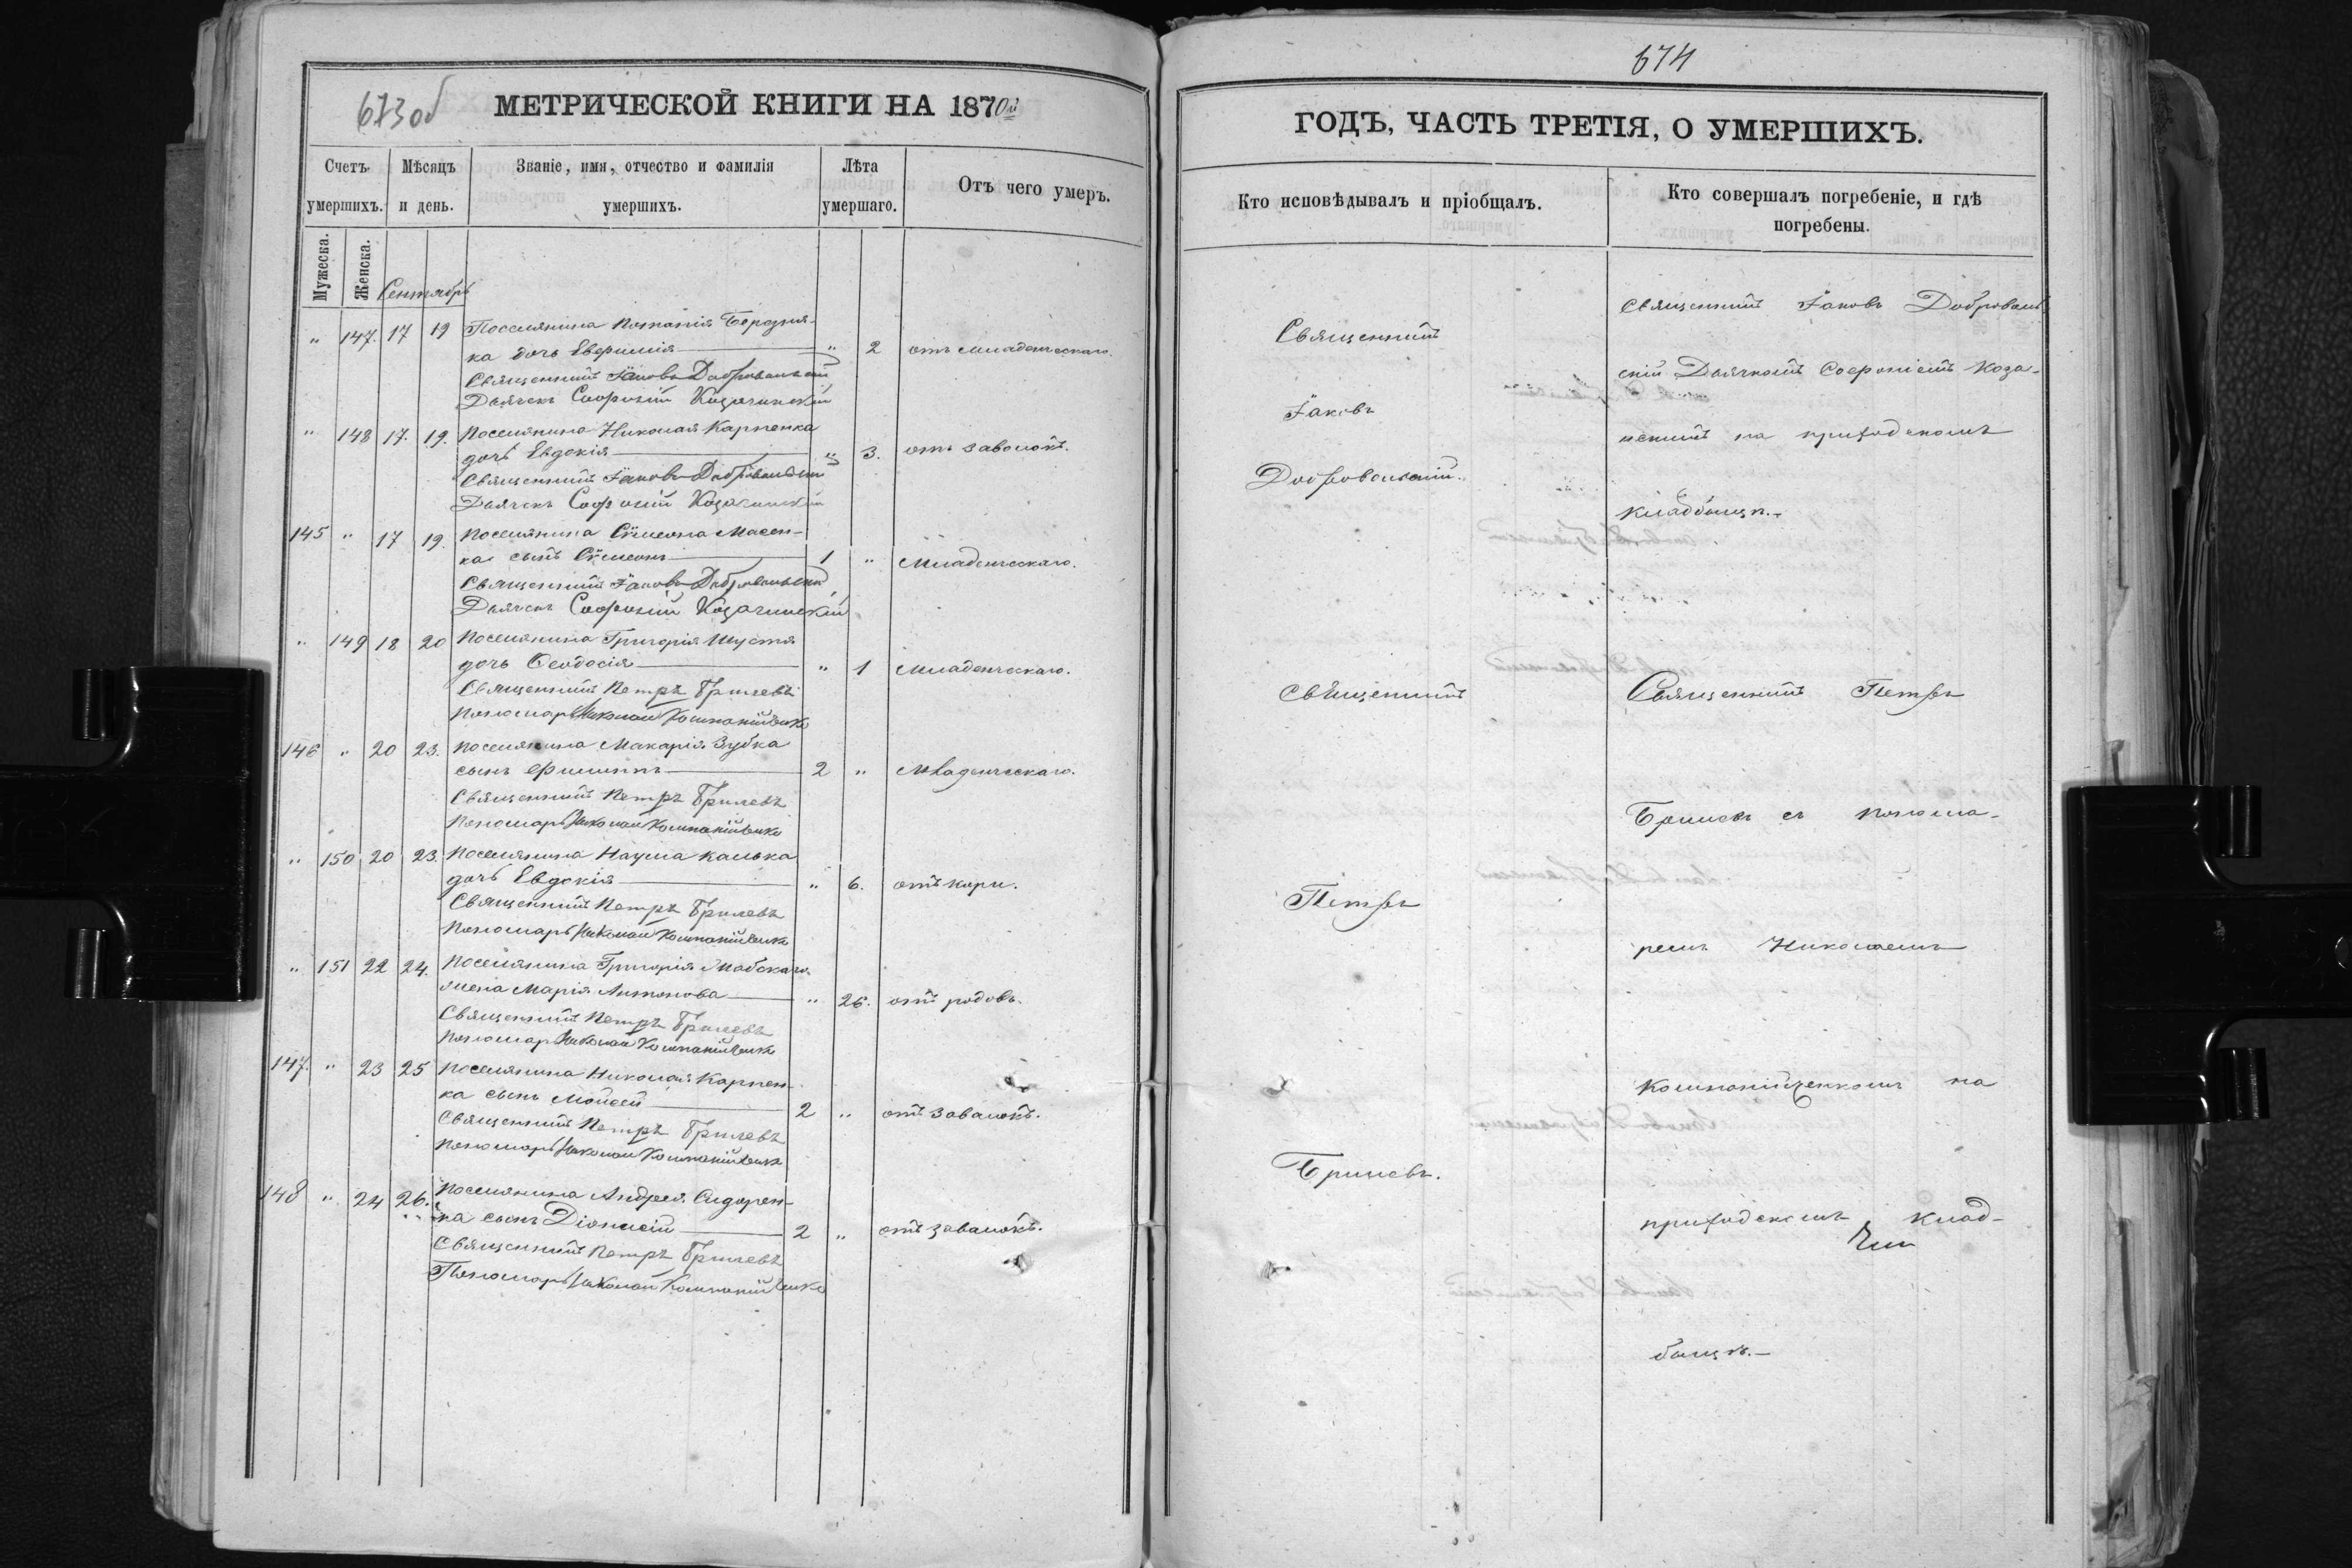 673об
МЕТРИЧЕСКОЙ КНИГИ НА 1870й
Счетъ умершихъ.
Мѣсяцъ и день.
Званіе, имя, отчество и фамилія умершихъ.
Лѣта умершаго.
Отъ чего умеръ.
Мужеска.
Женска.
Сентябрь
" 147. 17 19 Поселянина Потапія Бородня-
ка дочь Евфимія " 2 отъ младенческаго.
Священникъ Іаковъ Добровольскій
Дьячекъ Софроній Козачинскій
" 148 17. 19. Поселянина Николая Карпенка
дочь Евдокія " 3. отъ заволокъ.
Священникъ Іаковъ Добровольскій
Дьячекъ Софроній Козачинскій
145 " 17 19. Поселянина Сѵмеона Масен-
ка сынъ Сѵмеонъ 1 " Младенческаго.
Священникъ Іаковъ Добровольскій
Дьячекъ Софроній Козачинскій
" 149 18 20 Поселянина Григорія Шустя
дочь Ѳеодосія " 1 младенческаго.
Священникъ Петръ Брилевъ
Пономарь Николай Компанійченко
146 " 20 23. Поселянина Макарія Зубка
сынъ Филиппъ 2 " Младенческаго.
Священникъ Петръ Брилевъ
Пономарь Николай Компанійченко
" 150 20 23. Поселянина Наума Калька
дочь Евдокія " 6. отъ кори.
Священникъ Петръ Брилевъ
Пономарь Николай Компанійченко
" 151 22 24. Поселянина Григорія
жена Марія Антонова " 26. отъ родовъ.
Священникъ Петръ Брилевъ
Пономарь Николай Компанійченко
147. " 23 25 Поселянина Николая Карпен-
ка сынъ Мойсей 2 " отъ заволокъ.
Священникъ Петръ Брилевъ
Пономарь Николай Компанійченко
148 " 24 26. Поселянина Андрея Сидорен-
ка сынъ Діонисій 2 " отъ заволокъ.
Священникъ Петръ Брилевъ
Пономарь Николай Компанійченко
674
ГОДЪ, ЧАСТЬ ТРЕТІЯ, О УМЕРШИХЪ.
Кто исповѣдывалъ и пріобщалъ.
Кто совершалъ погребеніе, и гдѣ
погребены.
Священникъ
Іаковъ
Добровольскій.
Священникъ
Петръ
Брилевъ.
Священникъ Іаковъ Доброволь-
скій Дьячкомъ Софроніемъ Коза-
чинскимъ на приходскомъ
кладбищѣ.
Священникъ Петръ
Брилевъ съ понома-
ремъ Николаемъ
Компанійченкомъ на
приходскомъ клад-
бищѣ.